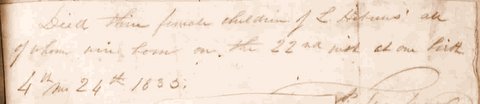 Died three female children of L. all
of whom were born on the 22nd inst at one birth
4th Mo 24th 1835.